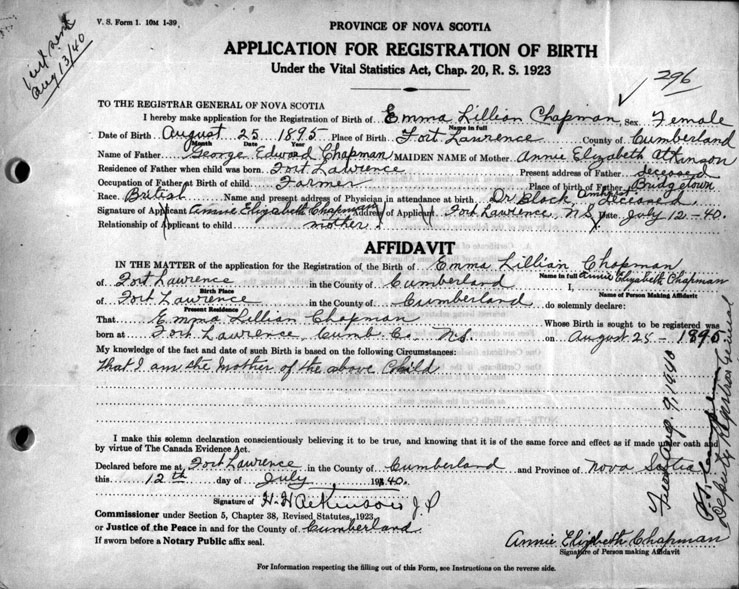 V. S. Form 1. 10M 1-39.
Aug 13/40
PROVINCE OF NOVA SCOTIA
APPLICATION FOR REGISTRATION OF BIRTH
Under the Vital Statistics Act, Chap. 20, R. S. 1923
296
TO THE REGISTRAR GENERAL OF NOVA SCOTIA
I hereby make application for the Registration of Birth of Emma Lillian Chapman Sex Female
Name in full
Date of Birth August 25 1895 Place of Birth Fort Lawrence County of Cumberland
Month Date Year
Name of Father George Edward Chapman MAIDEN NAME of Mother Annie Elizabeth Atkinson
Residence of Father when child was born Fort Lawrence Present address of Father deceased
Occupation of Father at Birth of child Farmer Place of birth of Father Bridgetown
Race British Name and present address of Physician in attendance at birth Dr Black, Amherst deceased
Signature of Applicant Annie Elizabeth Chapman Address of Applicant Fort Lawrence, N.S. Date July 12-40.
Relationship of Applicant to child mother
AFFIDAVIT
IN THE MATTER of the application for the Registration of the Birth of Emma Lillian Chapman
Name in full
of Fort Lawrence in the County of Cumberland I, Annie Elizabeth Chapman
Birth Place Name of Person Making Affidavit
of Fort Lawrence in the County of Cumberland do solemnly declare:
Present Residence
That Emma Lillian Chapman Whose Birth is sought to be registered was
born at Fort Lawrence, Cumb Co. N.S. on August 25 - 1895.
My knowledge of the fact and date of such Birth is based on the following Circumstances:
That I am the Mother of the above Child
I make this solemn declaration conscientiously believing it to be true, and knowing that it is of the same force and effect as if made under oath and
by virtue of The Canada Evidence Act.
Declared before me at Fort Lawrence in the County of Cumberland and Province of Nova Scotia
this 12th day of July 1940.
Signature of H. H. Atkinson J.P.
Commissioner under Section 5, Chapter 38, Revised Statutes, 1923,
or Justice of the Peace in and for the County of Cumberland
If sworn before a Notary Public affix seal.
Annie Elizabeth Chapman
Signature of Person making Affidavit
For Information respecting the filling out of this Form, see Instructions on the reverse side.
Filed Aug. 9, 1940
Deputy Registrar General